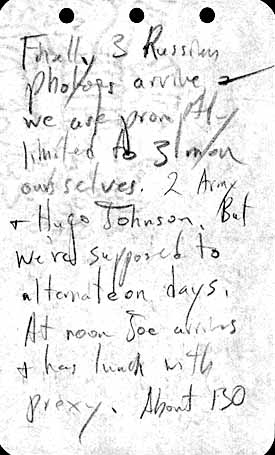 Finally 3 Russian
photogs arrive &
we are promptly
limited to 3 men
ourselves. 2 Army
+ Hugo Johnson. But
we're supposed to
alternate on days.
At noon Joe arrives
+ has lunch with
prexy. About 130